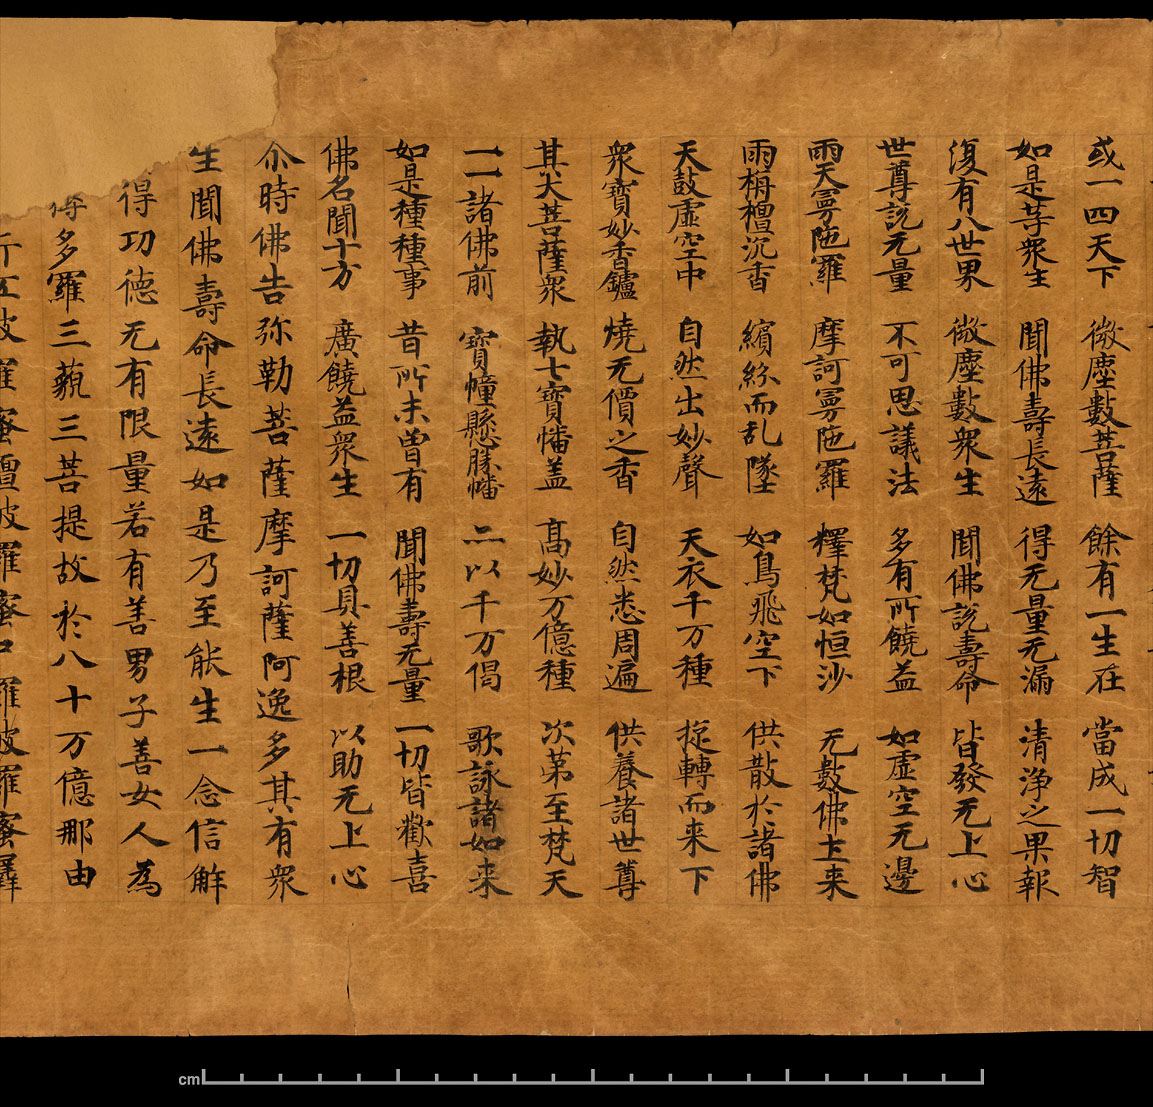 或一四天下 微塵數菩薩 餘有一生在 當成一切智
如是等衆生 聞佛壽長遠 得无量无漏 清淨之果報
復有八世界 微塵數衆生 聞佛說壽命 皆發无上心
世尊說无量 不可思議法 多有所饒益 如虛空无邊
雨天㝹陁羅 摩訶㝹陁羅 釋梵如恒沙 无數佛土來
雨栴檀沉香 繽紛而乱墜 如鳥飛空下 供散於諸佛
天鼓虛空中 自然出妙聲 天衣千万種 㨄轉而来下
衆寶妙香鑪 燒无價之香 自然悉周遍 供養諸世尊
其大菩薩衆 執七寶幡盖 高妙万億種 次第至梵天
一一諸佛前 寶幢懸勝幡 二以千万偈 歌詠諸如来
如是種種事 昔所未曾有 聞佛壽无量 一切皆歡喜
佛名聞十方 廣饒益衆生 一切具善根 以助无上心
尒時佛告弥勒菩薩摩訶薩阿逸多其有衆
生聞佛壽命長遠如是乃至能生一念信解
得功德无有限量若有善男子善女人為
多羅三藐三菩提故於八十万億那由
波羅蜜檀波羅蜜尸羅波羅蜜羼